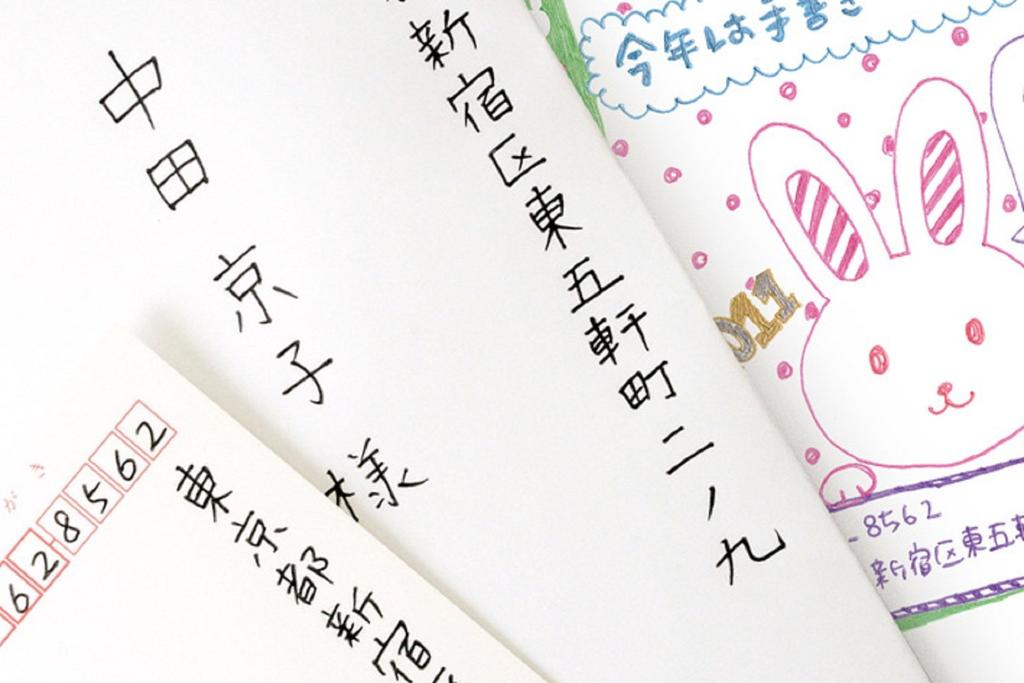 新宿区東五軒町二ノ九
中田 京子 様
628562
東京都新宿
がき
今年は手書き
011
-8562
新宿区東五軒